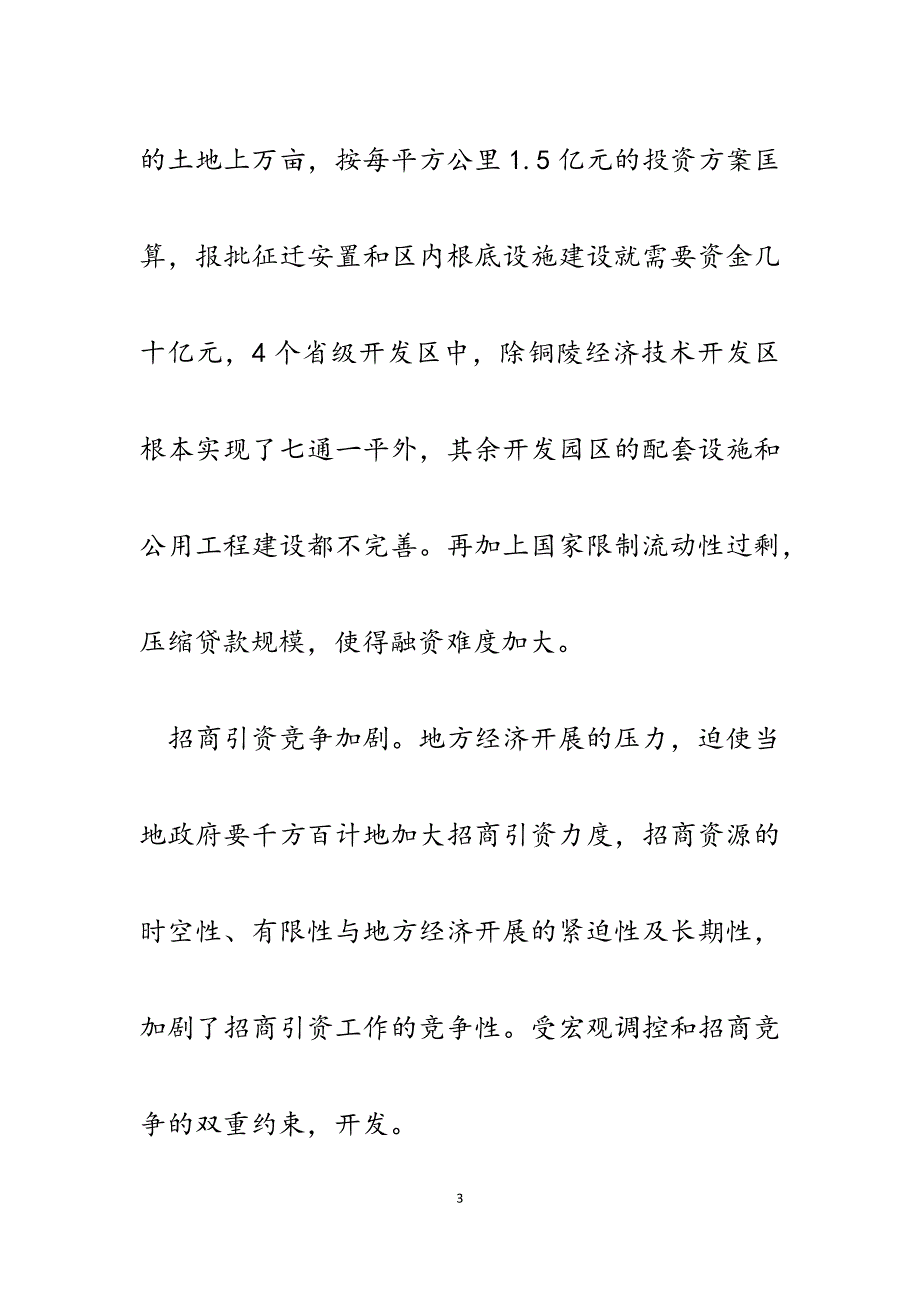 的土地上万亩，按每平方公里1.5亿元的投资方案匡
算，报批征迁安置和区内根底设施建设就需要资金几
十亿元，4个省级开发区中，除铜陵经济技术开发区
根本实现了七通一平外，其余开发园区的配套设施和
公用工程建设都不完善。再加上国家限制流动性过剩，
压缩贷款规模，使得融资难度加大。
招商引资竞争加剧。地方经济开展的压力，迫使当
地政府要千方百计地加大招商引资力度，招商资源的
时空性、有限性与地方经济开展的紧迫性及长期性，
加剧了招商引资工作的竞争性。受宏观调控和招商竞
争的双重约束，开发。
3